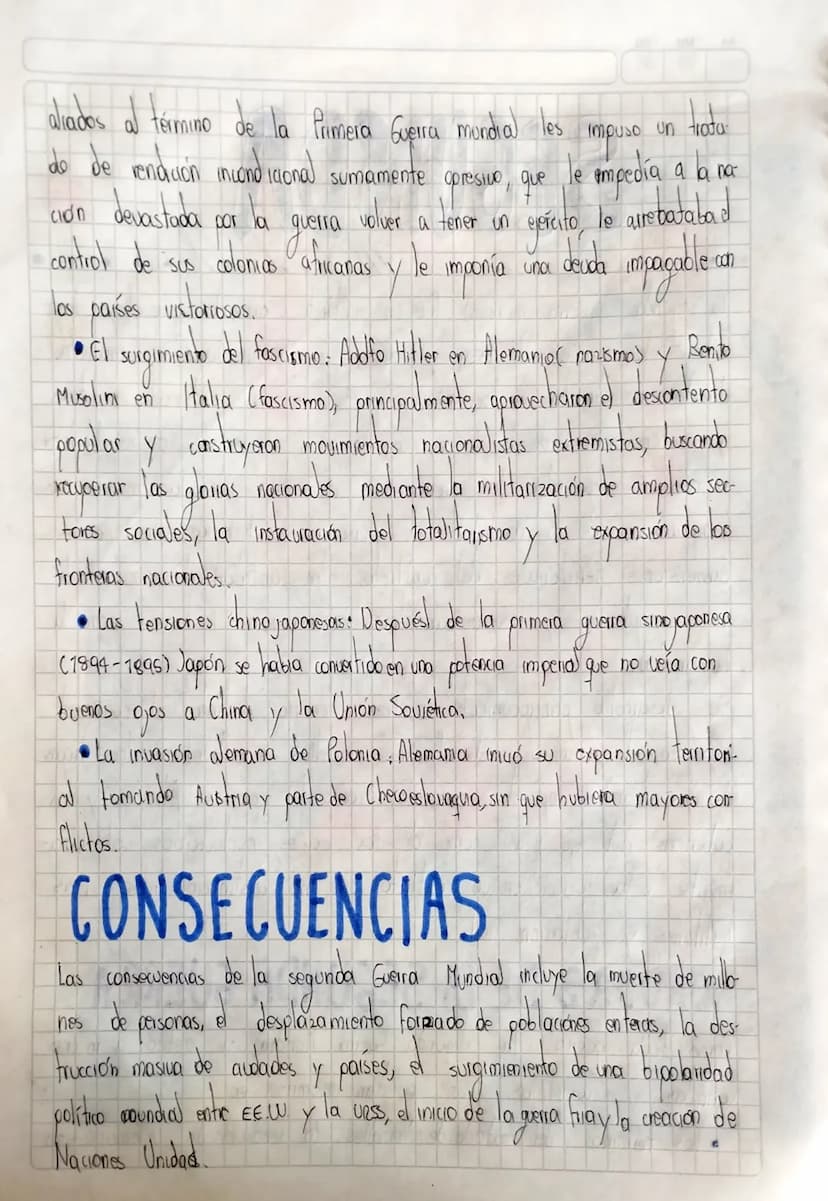 aliados al término de la Primera Guerra mundial les impuso un trata-
do de rendición incondicional sumamente opresivo, que le impedía a la na-
ción devastada por la guerra volver a tener un ejército, le arrebataba el
control de sus colonias africanas y le imponía una deuda impagable con
los países victoriosos.
• El surgimiento del fascismo: Adolfo Hitler en Alemania( nazismo) y Benito
Musolini en Italia (fascismo), principalmente, aprovecharon el descontento
popular y construyeron movimientos nacionalistas extremistas, buscando
recuperar las glorias nacionales mediante la militarización de amplios sec-
tores sociales, la instauración del totalitarismo y la expansión de las
fronteras nacionales.
• Las tensiones chino japonesas: Después de la primera guerra sino japonesa
(1894-1895) Japón se había convertido en una potencia imperial que no veía con
buenos ojos a China y la Unión Soviética.
• La invasión alemana de Polonia: Alemania inició su expansión territori-
al tomando Austria y parte de Checoeslovaquia, sin que hubiera mayores con
flictos.
CONSECUENCIAS
Las consecuencias de la segunda Guerra Mundial incluye la muerte de millo-
nes de personas, el desplazamiento forzado de poblaciones enteras, la des-
trucción masiva de ciudades y países, el surgimieniento de una bipolaridad
político mundial entre EE.UU y la URSS, el inicio de la guerra fria y la creación de
Naciones Unidad.